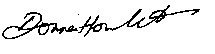 Donna Howlett